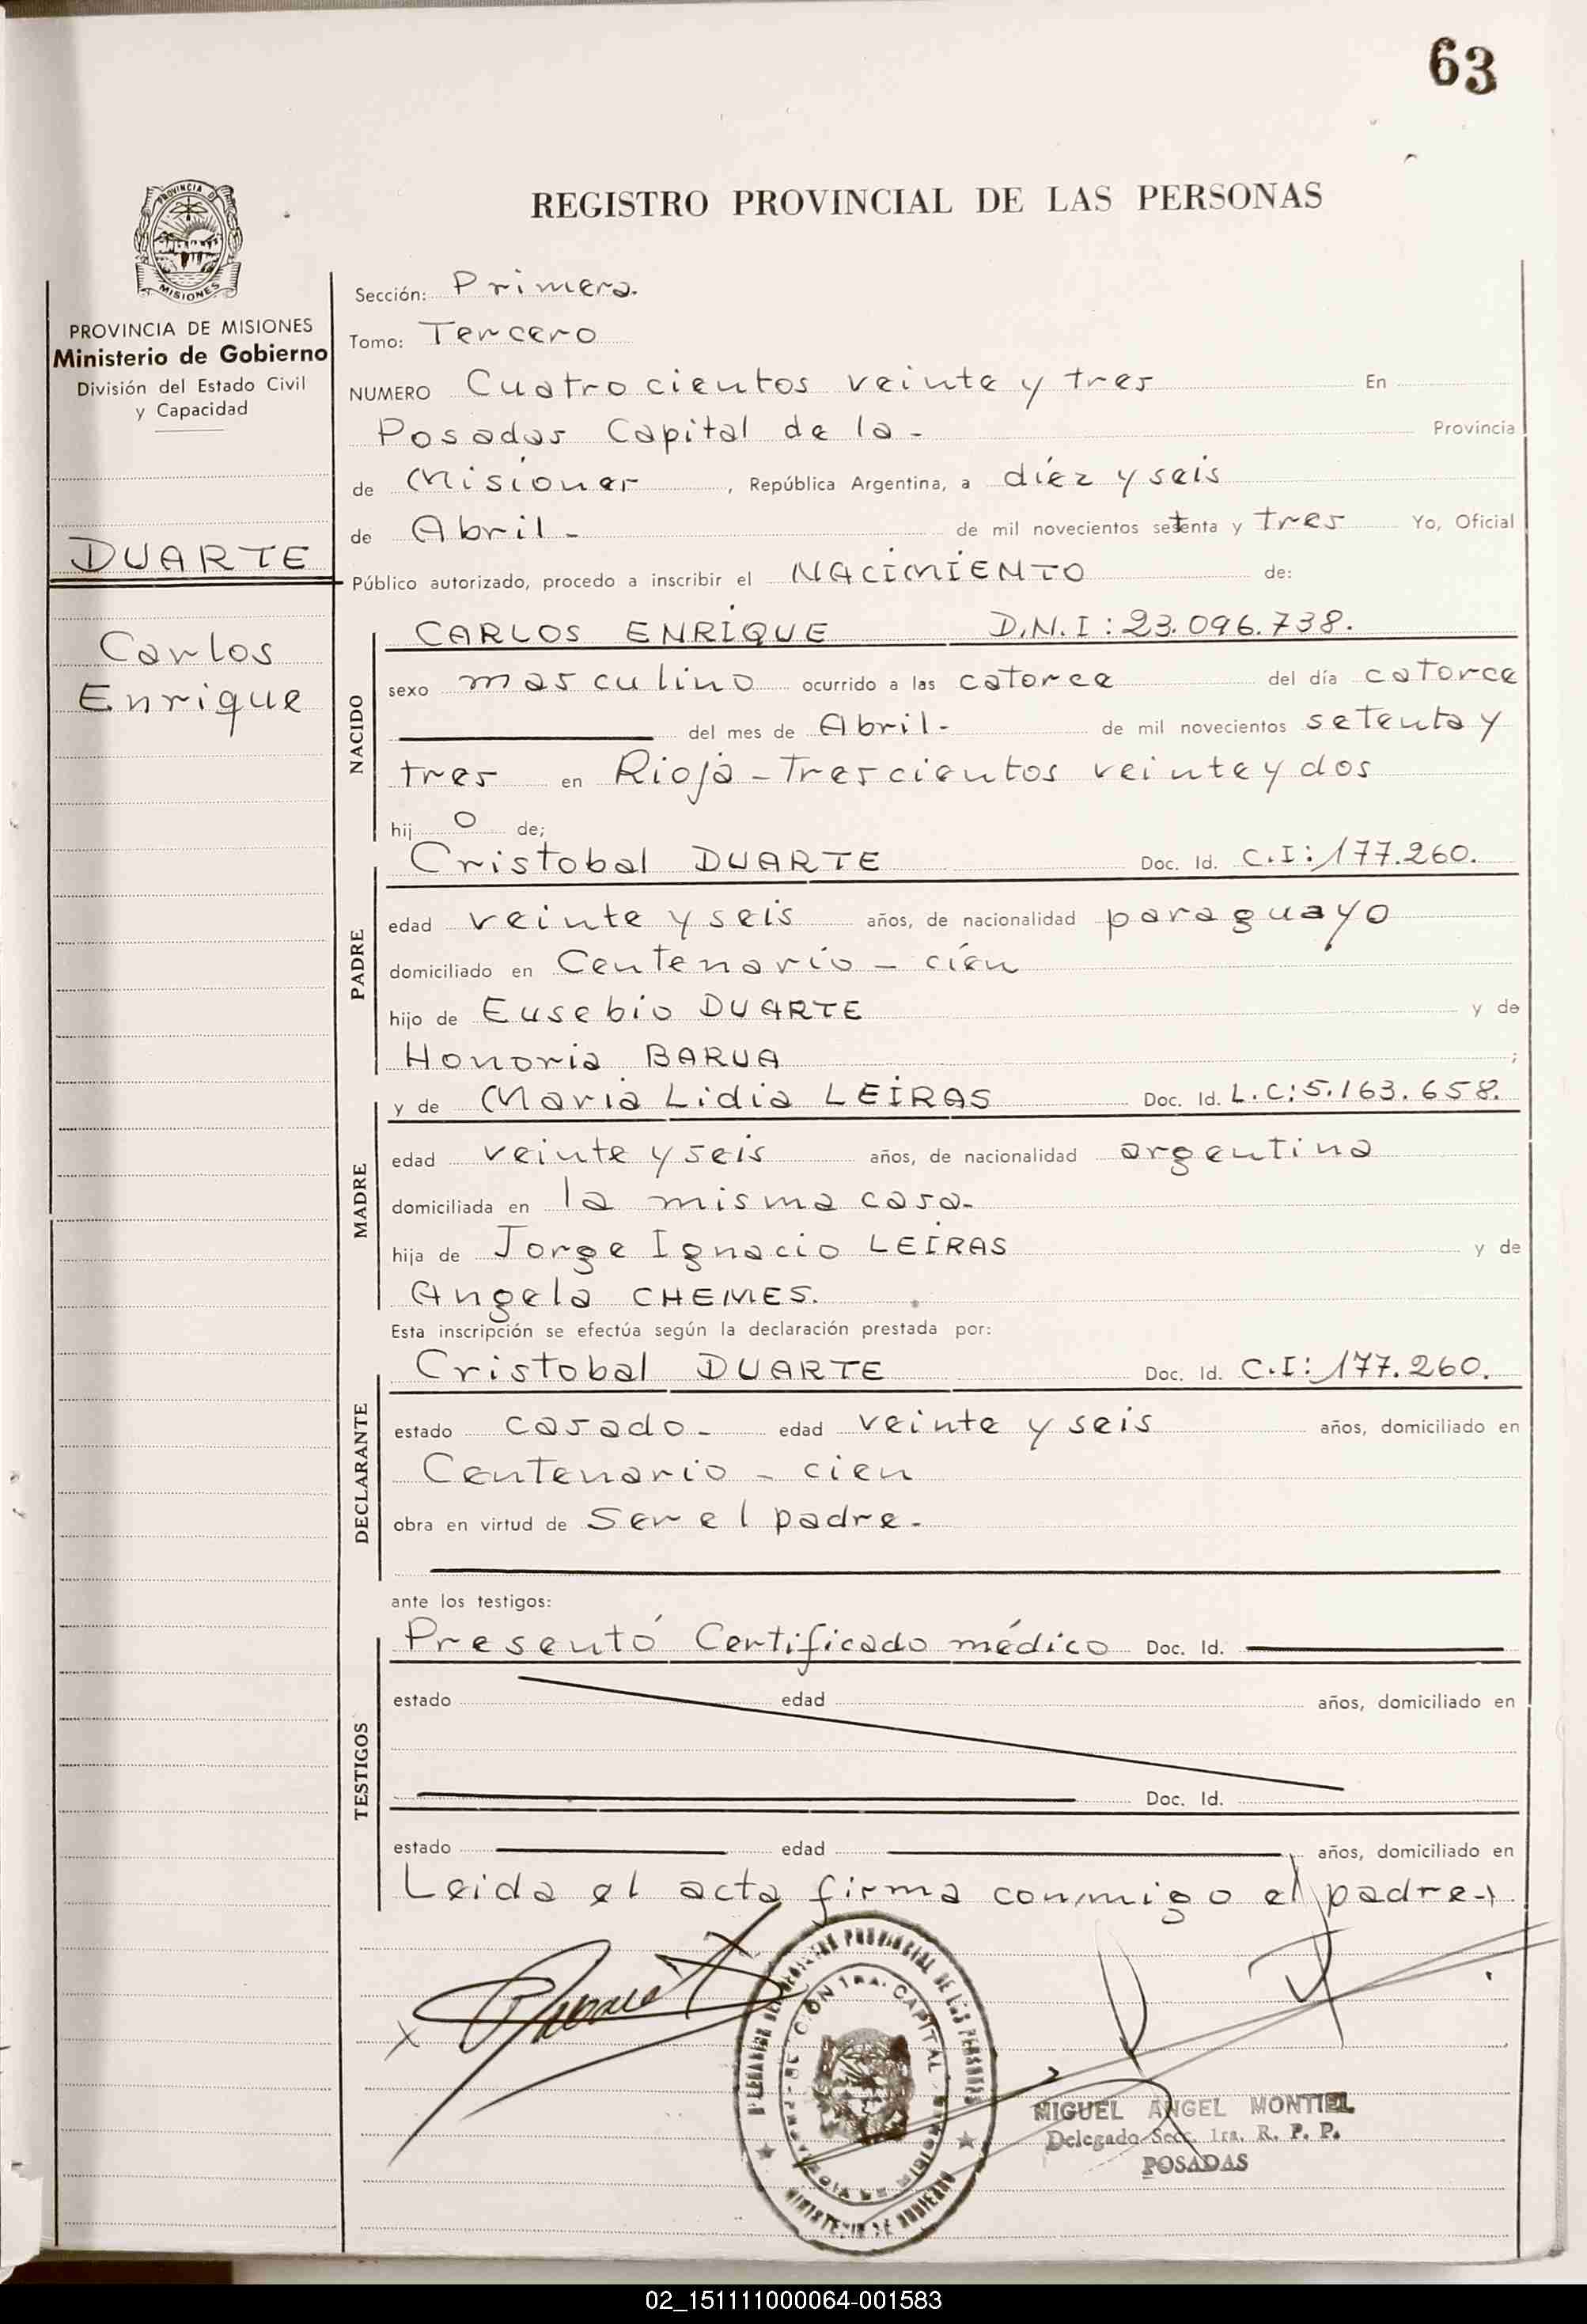 63
REGISTRO PROVINCIAL DE LAS PERSONAS
PROVINCIA DE MISIONES
Ministerio de Gobierno
División del Estado Civil
y Capacidad
DUARTE
Carlos
Enrique
Sección: Primera.
Tomo: Tercero
NUMERO Cuatrocientos veinte y tres En
Posadas Capital de la - Provincia
de Misiones, República Argentina, a diéz y seis
de Abril - de mil novecientos setenta y tres Yo, Oficial
Público autorizado, procedo a inscribir el NACIMIENTO de:
NACIDO
CARLOS ENRIQUE D.N.I: 23.096.738.
sexo masculino ocurrido a las catorce del día catorce
del mes de Abril - de mil novecientos setenta y
tres en Rioja - Trescientos veinte y dos
hijo de;
PADRE
Cristobal DUARTE Doc. Id. C.I: 177.260.
edad veinte y seis años, de nacionalidad paraguayo
domiciliado en Centenario - cién
hijo de Eusebio DUARTE y de
Honoria BARUA ;
MADRE
y de Maria Lidia LEIRAS Doc. Id. L.C: 5.163.658.
edad veinte y seis años, de nacionalidad argentina
domiciliada en la misma casa.
hija de Jorge Ignacio LEIRAS y de
Angela CHEMES.
Esta inscripción se efectúa según la declaración prestada por:
DECLARANTE
Cristobal DUARTE Doc. Id. C.I: 177.260.
estado casado - edad veinte y seis años, domiciliado en
Centenario - cien
obra en virtud de Ser el padre -
ante los testigos:
TESTIGOS
Presentó Certificado médico Doc. Id.
estado edad años, domiciliado en
Doc. Id.
estado edad años, domiciliado en
Leida el acta firma conmigo el padre -
MIGUEL ANGEL MONTIEL
Delegado Secc. 1ra. R. P. P.
POSADAS
02_151111000064-001583